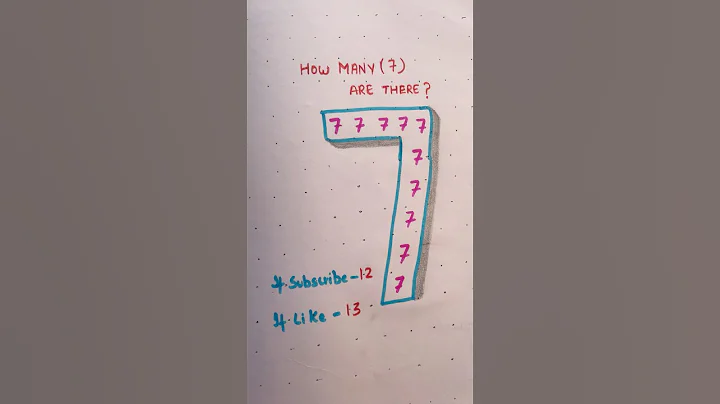 HOW MANY (7)
ARE THERE?
7 7 7 7 7
7
7
7
7
7
If Subscribe - 12
If Like - 13